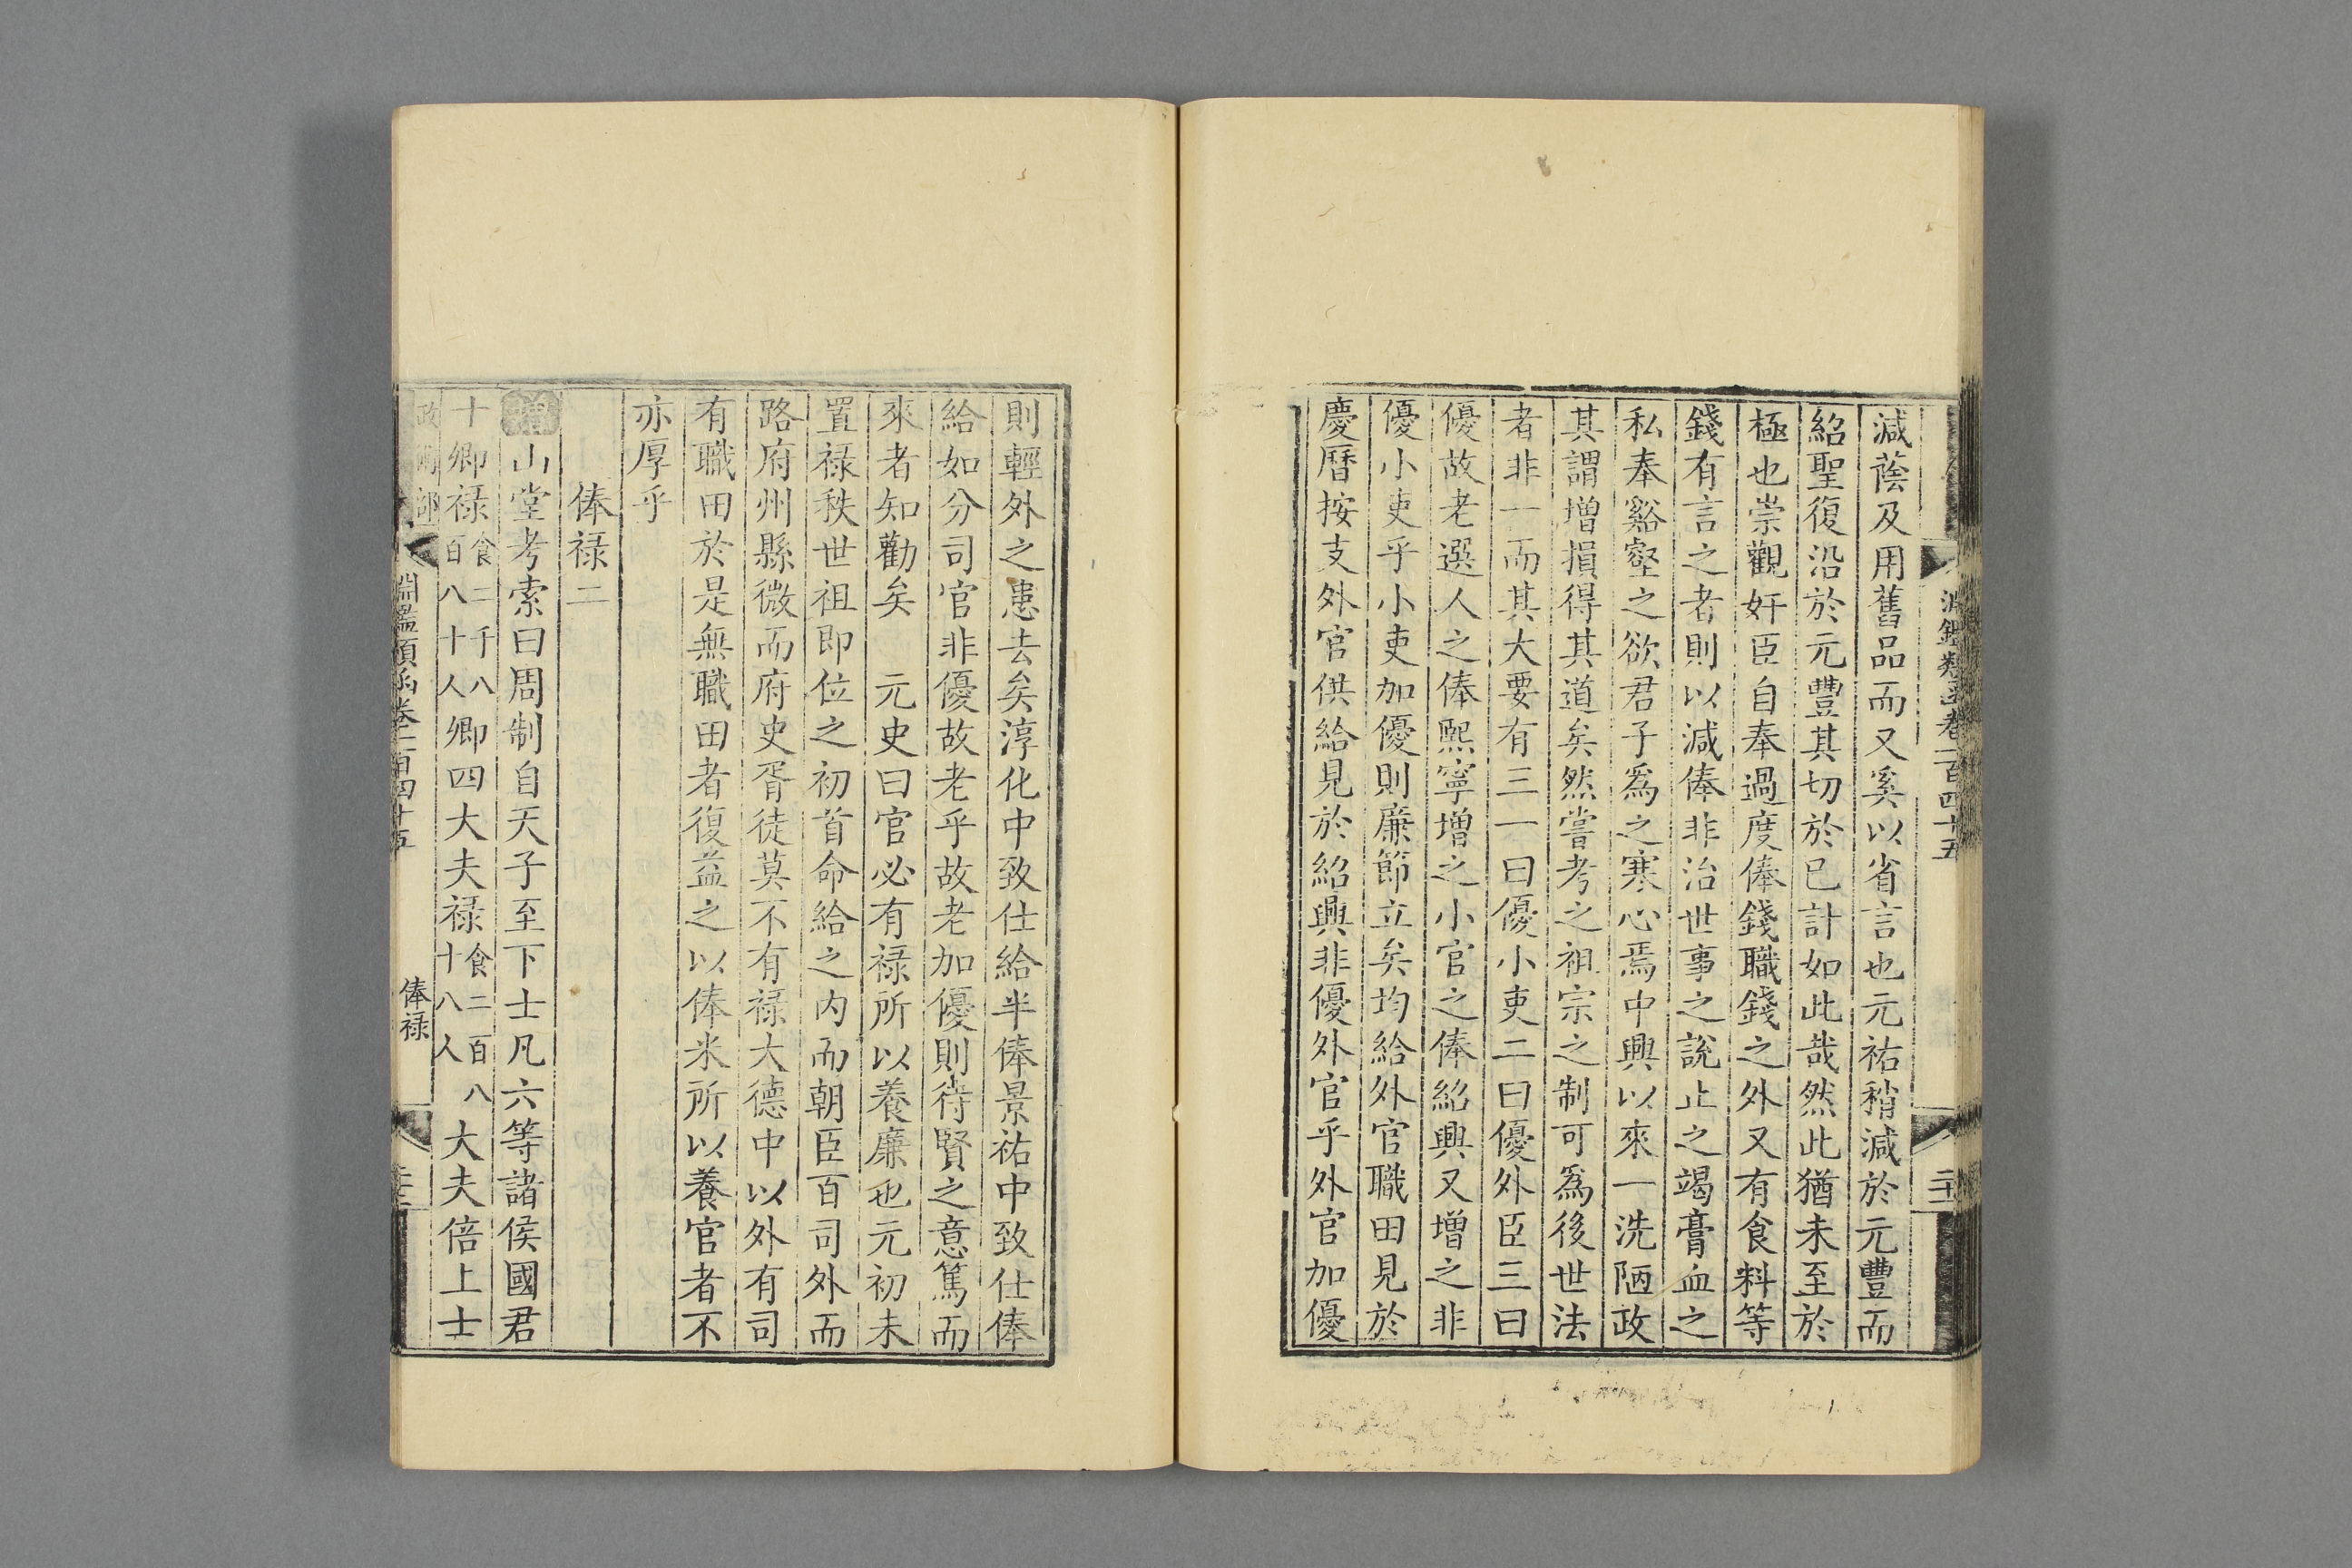 減蔭及用舊品而又奚以省言也元祐稍減於元豐而
紹聖復沿於元豐其切於已計如此哉然此猶未至於
極也崇觀奸臣自奉過度俸錢職錢之外又有食料等
錢有言之者則以減俸非治世事之說止之竭膏血之
私奉谿壑之欲君子爲之寒心焉中興以來一洗陋政
其謂增損得其道矣然嘗考之祖宗之制可爲後世法
者非一而其大要有三一曰優小吏二曰優外臣三曰
優故老選人之俸熙寧增之小官之俸紹興又增之非
優小吏乎小吏加優則廉節立矣均給外官職田見於
慶曆按支外官供給見於紹興非優外官乎外官加優
則輕外之患去矣淳化中致仕給半俸景祐中致仕俸
給如分司官非優故老乎故老加優則待賢之意篤而
來者知勸矣　元史曰官必有祿所以養廉也元初未
置祿秩世祖即位之初首命給之內而朝臣百司外而
路府州縣微而府史胥徒莫不有祿大德中以外有司
有職田於是無職田者復益之以俸米所以養官者不
亦厚乎
俸祿二
山堂考索曰周制自天子至下士凡六等諸侯國君
十卿祿食二千八百八十人卿四大夫祿食二百八十八人大夫倍上士
淵鑑類函卷二百四十五
俸祿